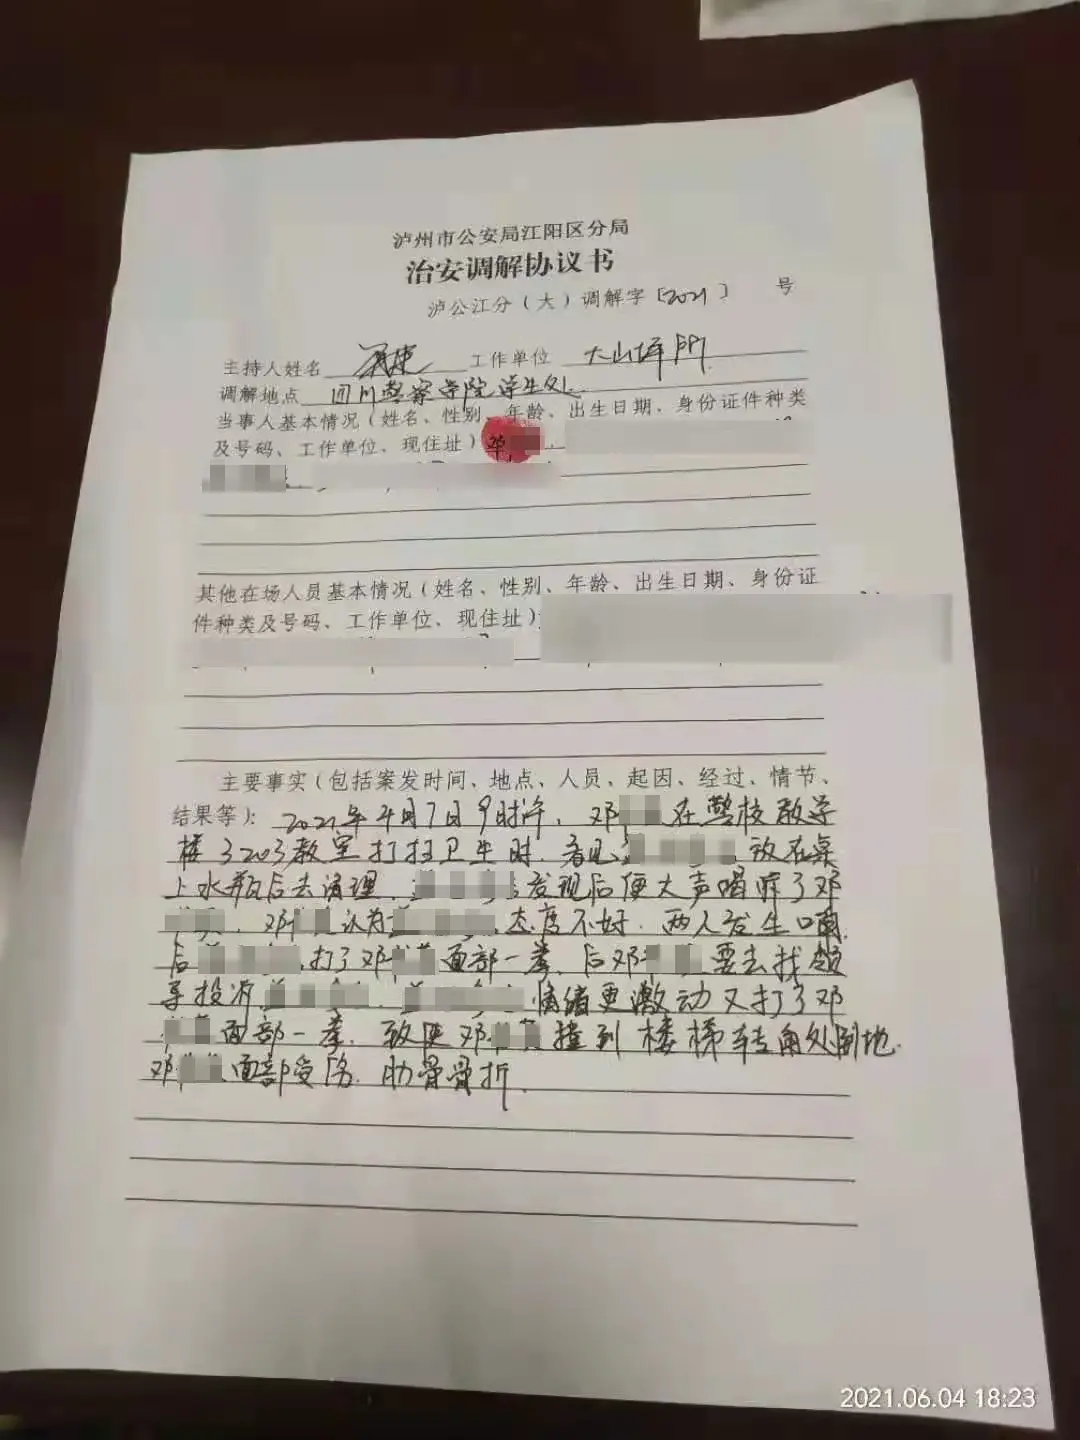 泸州市公安局江阳区分局
治安调解协议书
泸公江分(大)调解字〔2021〕 号
主持人姓名 工作单位 大山坪所
调解地点 四川警察学院学生处
当事人基本情况(姓名、性别、年龄、出生日期、身份证件种类
及号码、工作单位、现住址)
其他在场人员基本情况(姓名、性别、年龄、出生日期、身份证
件种类及号码、工作单位、现住址)
主要事实(包括案发时间、地点、人员、起因、经过、情节、
结果等):2021年4月7日9时许,邓 在警校教学
楼3203教室打扫卫生时,看见 放在桌
上水瓶后去清理, 发现后便大声喝斥了邓
,邓 认为 态度不好,两人发生口角,
后 打了邓 面部一拳,后邓 要去找领
导投诉 , 情绪更激动又打了邓
面部一拳,致使邓 撞到楼梯转角处倒地.
邓 面部受伤,肋骨骨折.
2021.06.04 18:23